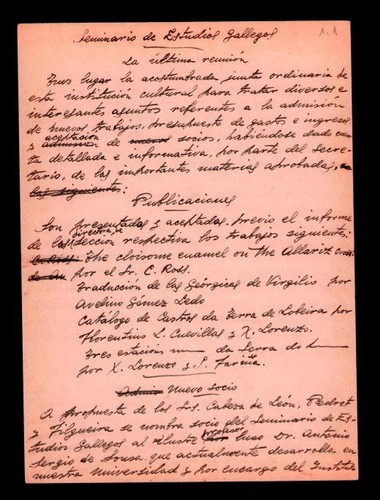 Seminario de Estudios Gallegos
1.1
La última reunión
Tuvo lugar la acostumbrada junta ordinaria de
esta institución cultural para tratar diversos e
interesantes asuntos referentes a la admisión
de nuevos trabajos, presupuesto de gastos e ingresos
y aceptación de socios, habiéndose dado cuen-
ta detallada e informativa, por parte del Secre-
tario, de las importantes materias aprobadas,
las siguientes:
Publicaciones
Son presentados y aceptados, previo el informe
directriz
de la Sección respectiva los trabajos siguientes:
C. Ross. The cloisome enamel on the Allariz Cross
por el Sr. C. Ross.
Traducción de las Geórgicas de Virgilio por
Avelino Gómez Ledo
Catálogo de Castros da Terra de Lobeira por
Florentino L. Cuevillas y X. Lorenzo.
Tres estacións da Serra do L
por X. Lorenzo y S. Fariña.
Admin Nuevo socio
A propuesta de los Srs. Cabeza de León, Pedret
y Filgueira se nombra socio del Seminario de Es-
tudios Gallegos al ilustre profesor luso Dr. Antonio
Sergio de Sousa, que actualmente desarrolla en
nuestra Universidad y por encargo del Instituto